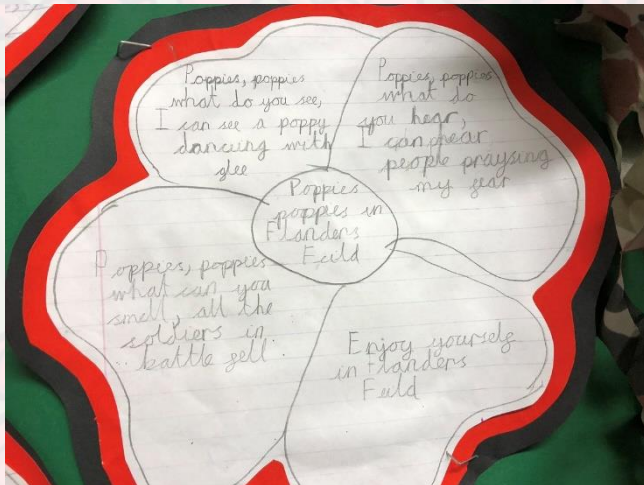 Poppies, poppies
what do you see,
I can see a poppy
dancing with
glee
Poppies, poppies
what do
you hear,
I can hear
people praysing
my fear
Poppies
poppies in
Flanders
Feild
Poppies, poppies
what can you
smell, all the
soldiers in
battle fell.
Enjoy yourself
in Flanders
Feild